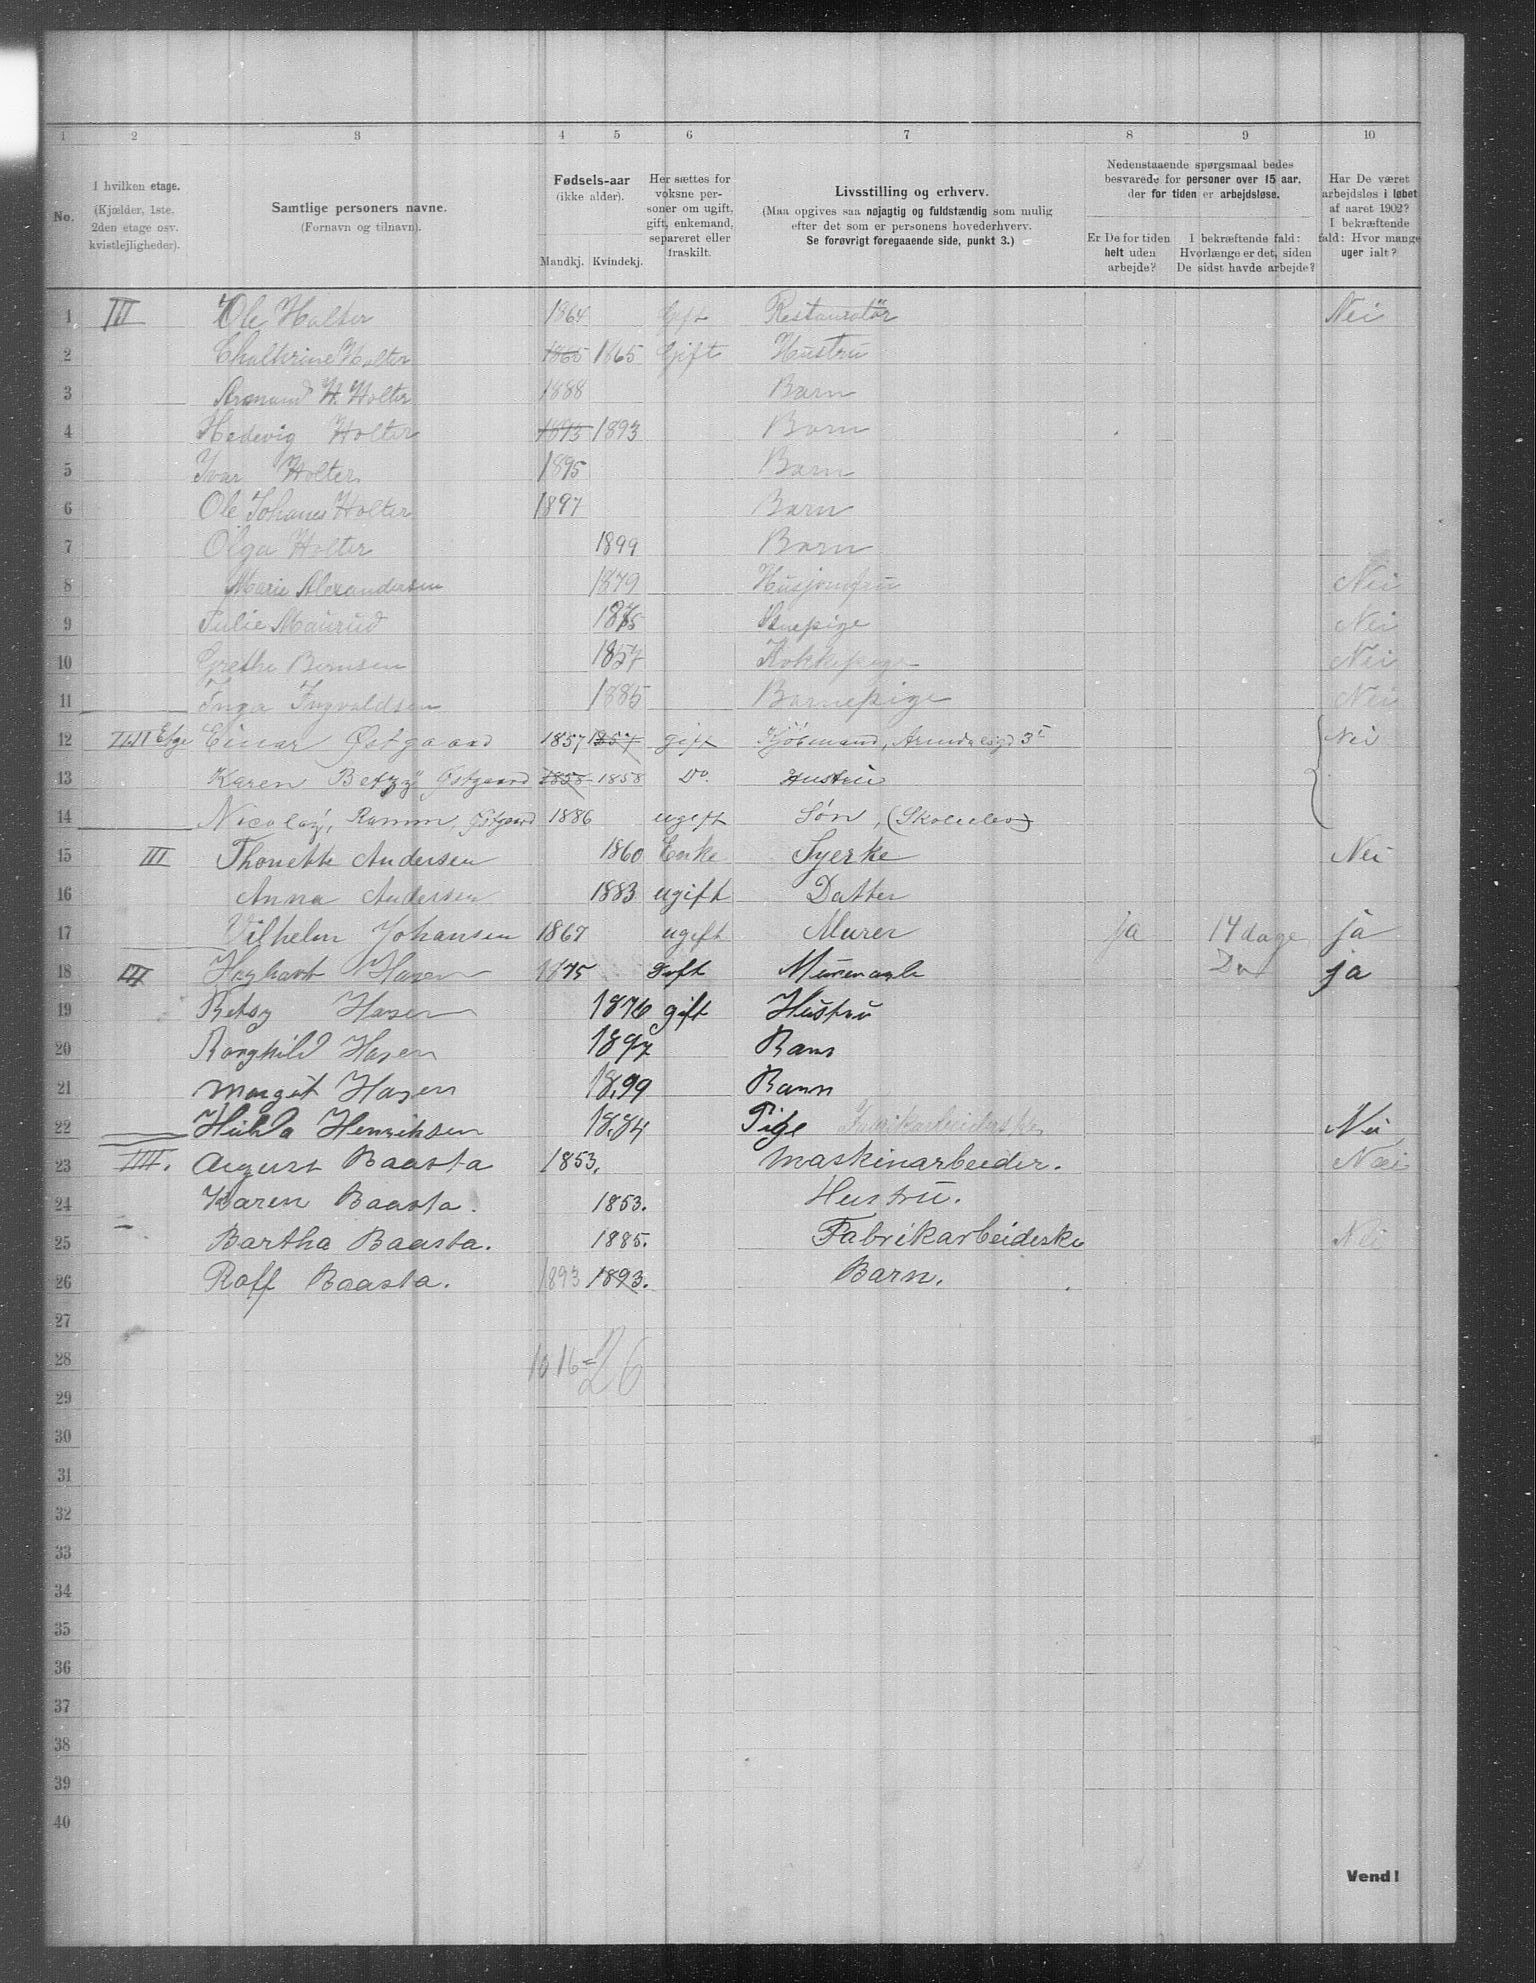 1 2 3 4 5 6 7 8 9 10
No.
I hvilken etage.
(Kjælder, 1ste.
2den etage osv.
kvistlejligheder).
Samtlige personers navne.
(Fornavn og tilnavn).
Fødsels-aar
(ikke alder).
Mandkj. Kvindekj.
Her sættes for
voksne per-
soner om ugift,
gift, enkemand,
separeret eller
fraskilt.
Livsstilling og erhverv.
(Maa opgives saa nøjagtig og fuldstændig som mulig
efter det som er personens hovederhverv.
Se forøvrigt foregaaende side, punkt 3.)
Nedenstaaende spørgsmaal bedes
besvarede for personer over 15 aar,
der for tiden er arbejdsløse.
Er De for tiden
helt uden
arbejde?
I bekræftende fald:
Hvorlænge er det, siden
De sidst havde arbejde?
Har De været
arbejdsløs i løbet
af aaret 1902?
I bekræftende
fald: Hvor mange
uger ialt?
1 III Ole Holter 1864 Gift Restauratør Nei
2 Chathrine Holter 1865 1865 Gift Hustru
3 Armand H. Holter 1888 Barn
4 Hedevig Holter 1893 1893 Barn
5 Ivar Holter 1895 Barn
6 Ole Johanes Holter 1897 Barn
7 Olga Holter 1899 Barn
8 Marie Alexandersen 1879 Husjomfru Nei
9 Julie Maurud 1875 Stuepige Nei
10 Grethe Bernsen 1857 Kokkepige Nei
11 Inga Ingvaldsen 1885 Barnepige Nei
12 III Etge Einar Østgaard 1857 1857 gift Kjøbmand, Arendalsgd 3 Nei
13 Karen Betzy Østgaard 1858 1858 Do. Hustru
14 Nicolay, Ramm, Østgaard 1886 ugift Søn, (Skoleelev)
15 III Thonette Andersen 1860 Enke Syerke Nei
16 Anna Andersen 1883 ugift Datter
17 Vilhelm Johansen 1867 ugift Murer Ja 14 dage ja
18 III Haghart Hasen 1875 Gift Murerarb Do ja
19 Betsy Hasen 1876 gift Hustru
20 Borghild Hasen 1897 Barn
21 Margit Hasen 1899 Barn
22 Hulda Henriksen 1884 Pige Fabrikarbeiderske Nei
23 IIII. August Baasta 1853. Maskinarbeider. Nei
24 Karen Baasta. 1853. Hustru.
25 Bartha Baasta. 1885. Fabrikarbeideske Nei
26 Rolf Baasta. 1893 1893. Barn.
27
28 10 16 = 26
29
30
31
32
33
34
35
36
37
38
39
40
Vend!